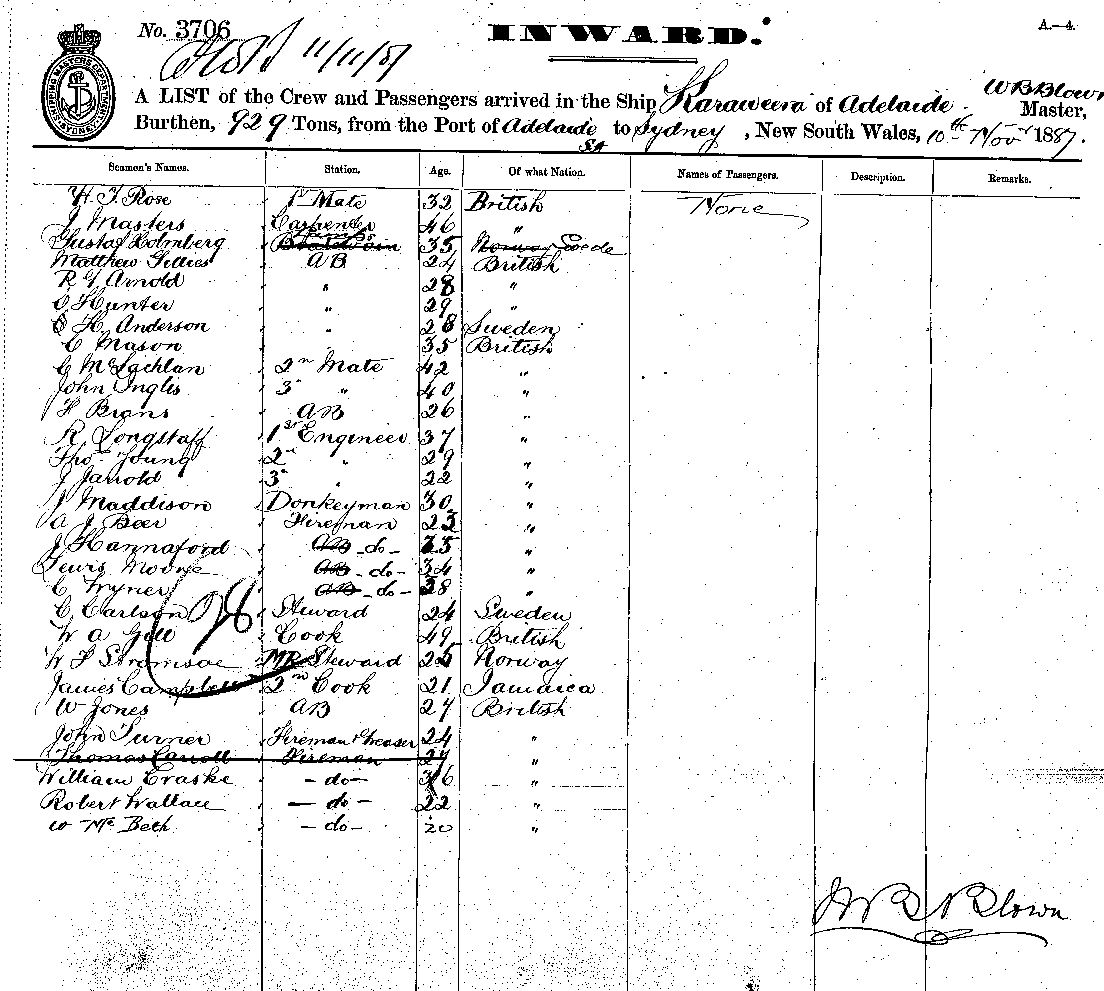 No. 3706
INWARD.
A.—4.
11/11/87
SHIPPING MASTERS DEPARTMENT SYDNEY
A LIST of the Crew and Passengers arrived in the Ship Karaweera of Adelaide W B Blown Master,
Burthen, 929 Tons, from the Port of Adelaide SA to Sydney, New South Wales, 10th Novr 1887.
Seamen's Names. Station. Age. Of what Nation. Names of Passengers. Description. Remarks.
H. J. Rose 1st Mate 32 British None
J Masters Carpenter 46 "
Gustaf Holmberg Lamps 35 Swede
Matthew Gillies AB 24 British
R G Arnold " 28 "
C Hunter " 29 "
C H. Anderson " 28 Sweden
C Mason " 35 British
C McLachlan 2nd Mate 42 "
John Inglis 3rd " 40 "
F Brans AB 26 "
R Longstaff 1st Engineer 37 "
Thos Young 2nd " 29 "
J Jarrold 3rd " 22 "
J Maddison Donkeyman 30 "
A J Beer Fireman 23 "
J Hannaford AB -do- 35 "
Lewis Moore AB -do- 34 "
C Wyner AB -do- 28 "
C Carlson Steward 24 Sweden
W A Gill Cook 49 British
28
W F Stromsoe MR Steward 25 Norway
James Campbell 2nd Cook 21 Jamaica
W Jones AB 27 British
John Turner Fireman & Greaser 24 "
Thomas Carroll Fireman 27 "
William Craske -do- 36 "
Robert Wallace -do- 22 "
W McBeth -do- 20 "
W B Blown